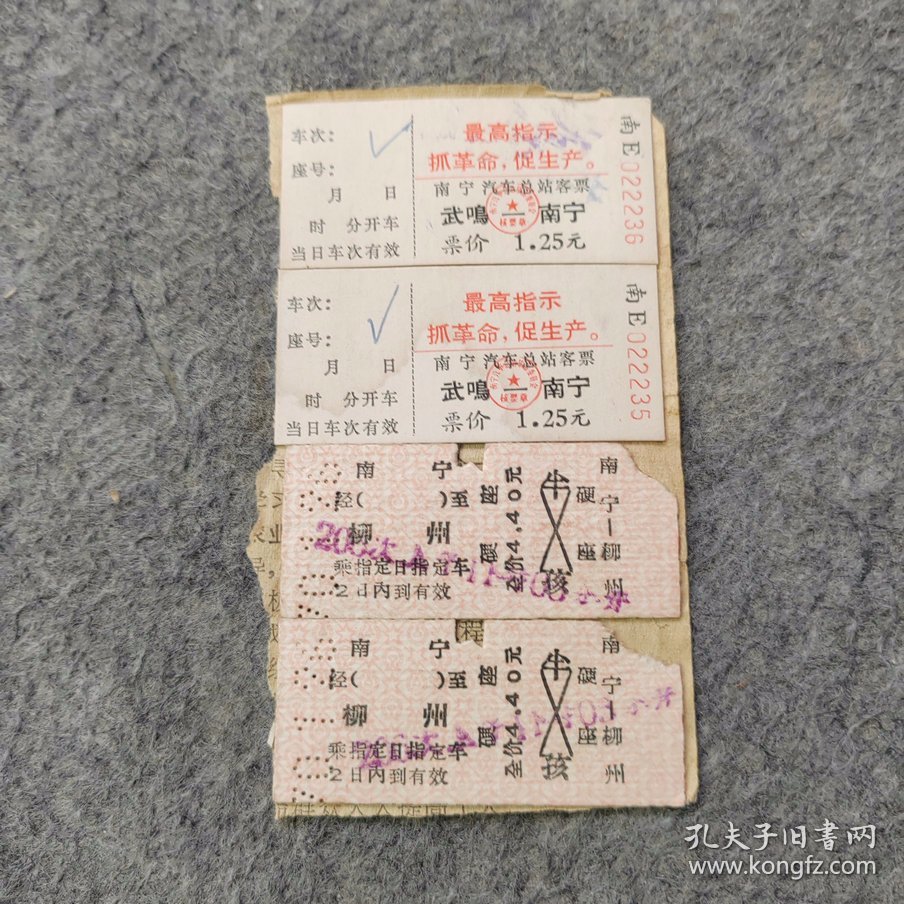 车次:
座号:
月 日
时 分开车
当日车次有效
最高指示
抓革命,促生产。
南宁汽车总站客票
武鳴—南宁
票价 1.25元
南E022236
车次:
座号:
月 日
时 分开车
当日车次有效
最高指示
抓革命,促生产。
南宁汽车总站客票
武鳴—南宁
票价 1.25元
南E022235
南 宁
经( )至
柳 州
乘指定日指定车
2日内到有效
硬座
全价4.40元
半
孩
硬座
南宁—柳州
南 宁
经( )至
柳 州
乘指定日指定车
2日内到有效
硬座
全价4.40元
半
孩
硬座
南宁—柳州
程
孔夫子旧书网
www.kongfz.com